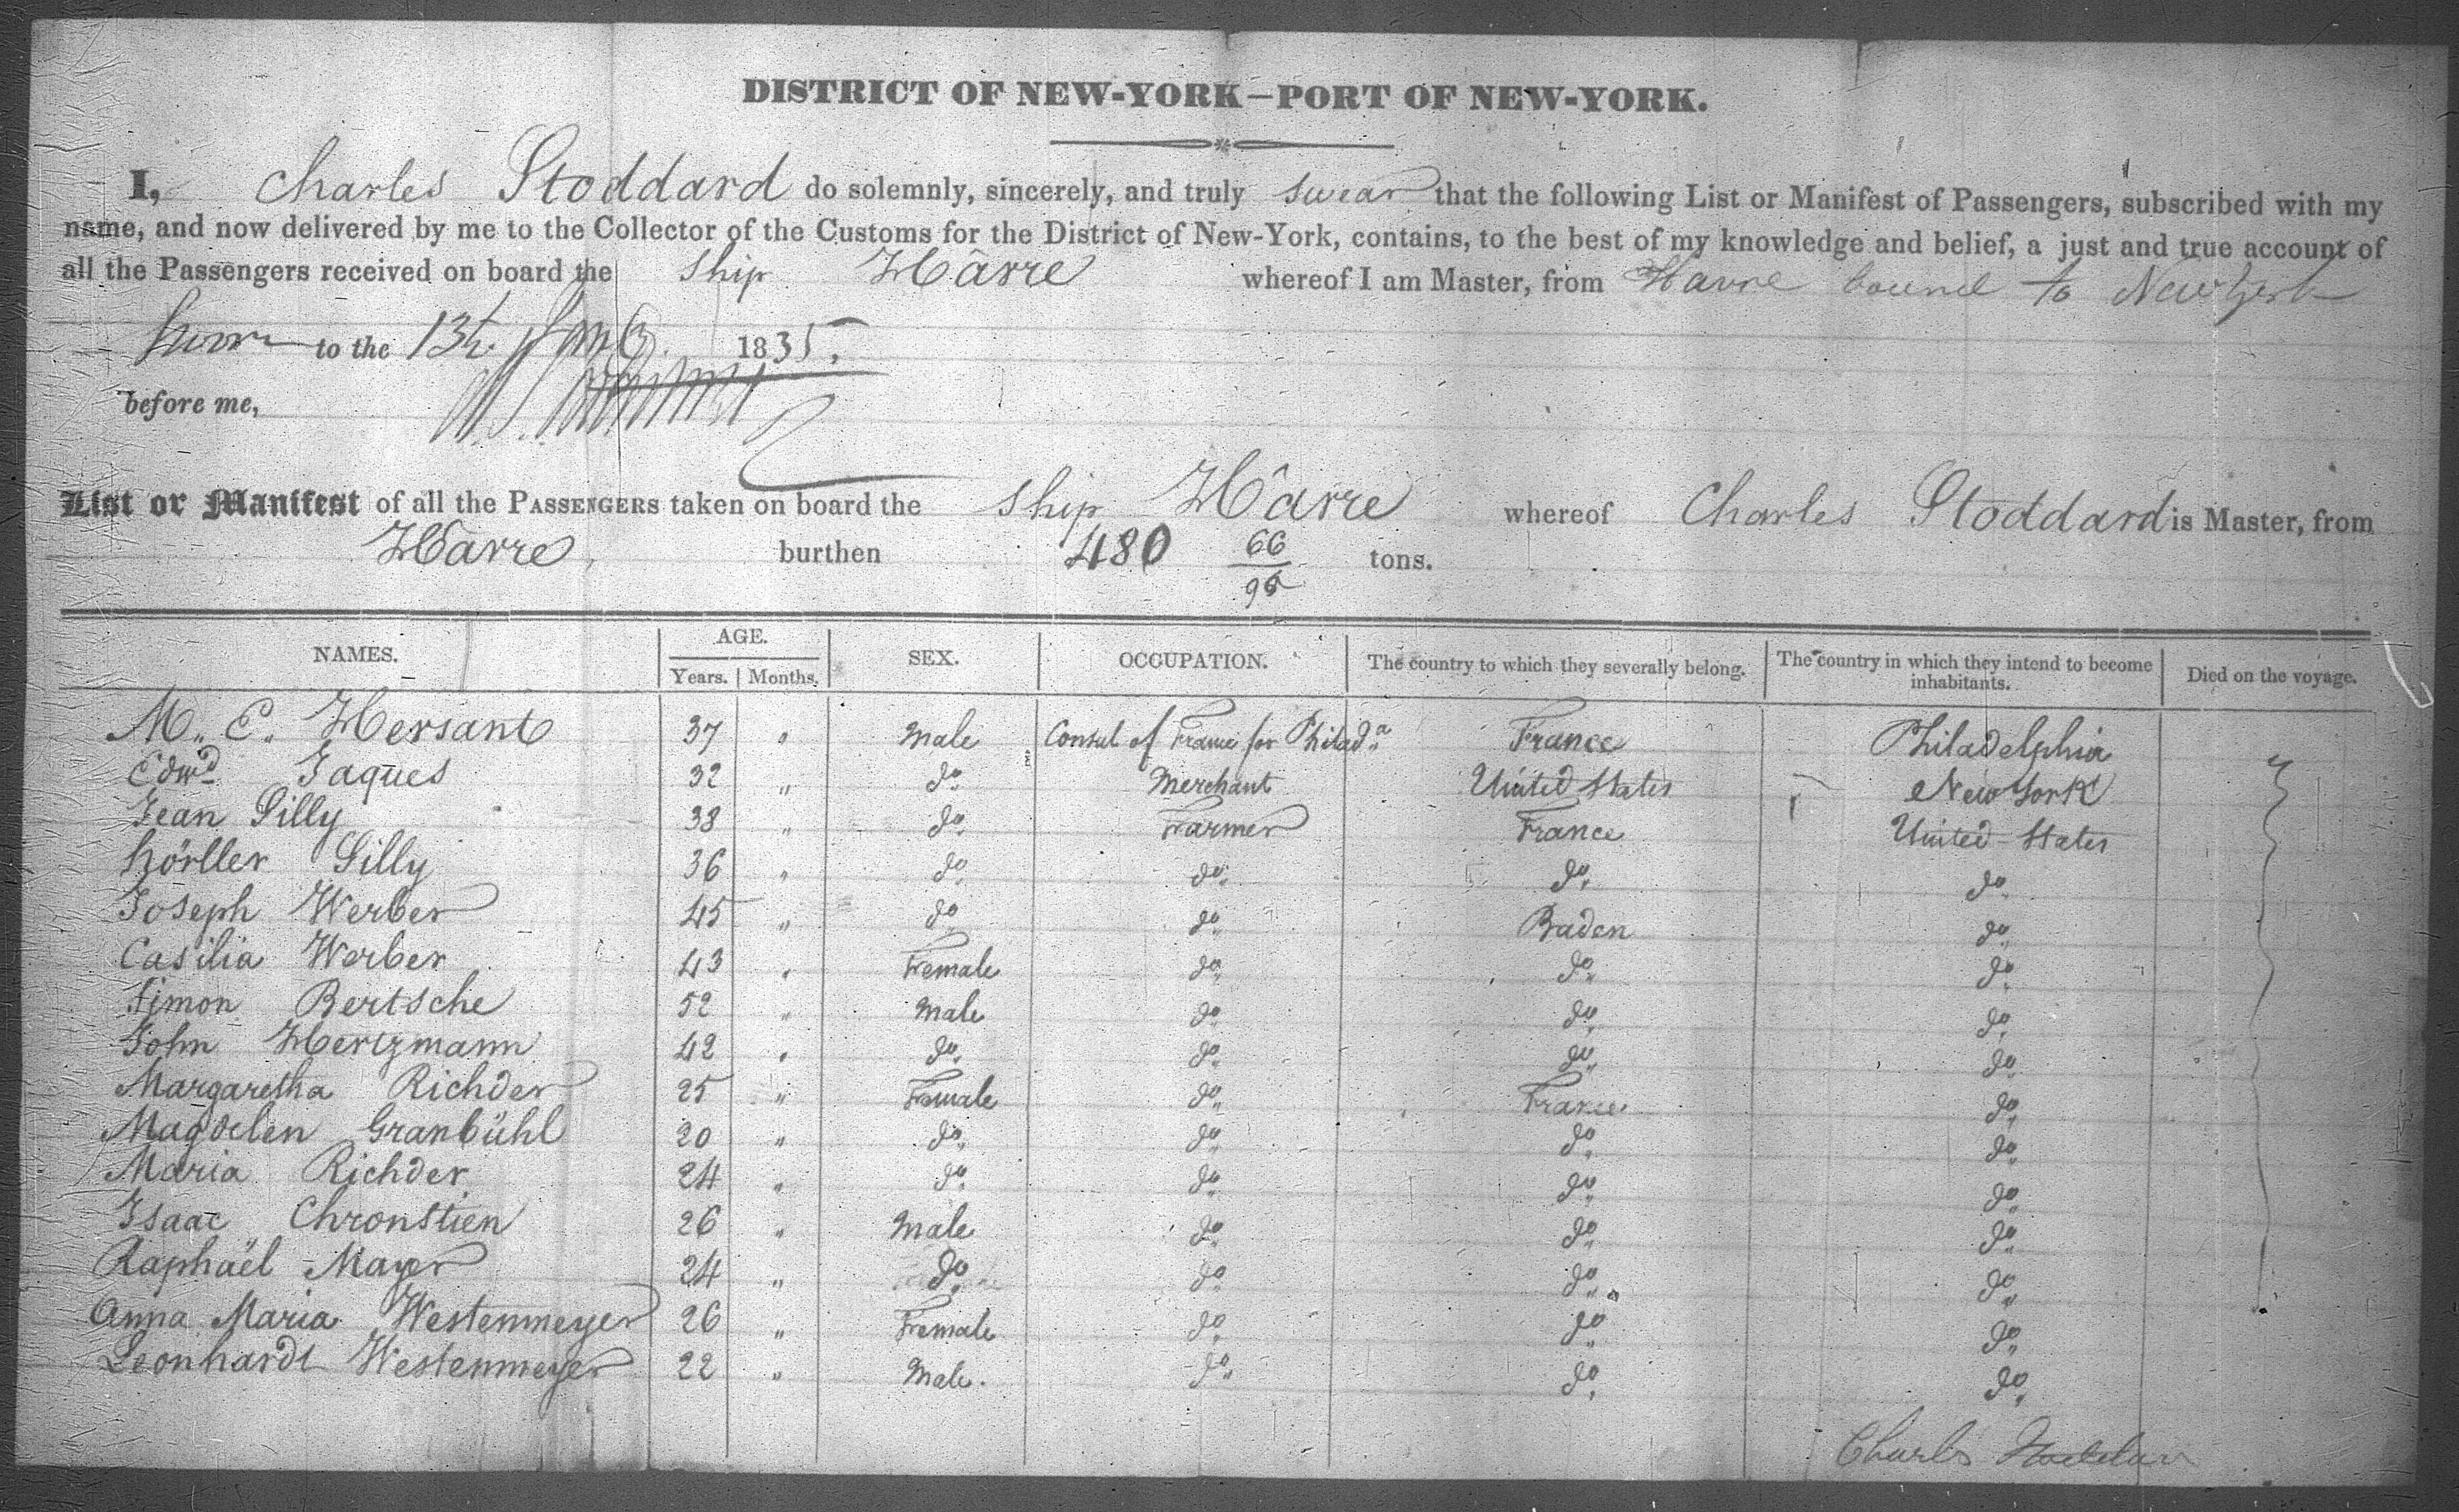 DISTRICT OF NEW-YORK—PORT OF NEW-YORK.
I, Charles Stoddard do solemnly, sincerely, and truly swear that the following List or Manifest of Passengers, subscribed with my
name, and now delivered by me to the Collector of the Customs for the District of New-York, contains, to the best of my knowledge and belief, a just and true account of
all the Passengers received on board the Ship Hâvre whereof I am Master, from Havre bound to New York
to the 13th 1835,
before me,
List or Manifest of all the PASSENGERS taken on board the Ship Hâvre whereof Charles Stoddard is Master, from
Hâvre, burthen 480 66/95 tons.
NAMES. AGE. Years. Months. SEX. OCCUPATION. The country to which they severally belong. The country in which they intend to become inhabitants. Died on the voyage.
M. E. Hersant 37 " Male Consul of France for Philada France Philadelphia
Edwd Jaques 32 " do Merchant United States New York
Jean Lilly 38 " do Farmer France United States
Lilly 36 " do do do do
Joseph Werber 45 " do do Baden do
Casilia Werber 43 " Female do do do
Simon Bertsche 52 " Male do do do
John Hertzmann 42 " do do do do
Margaretha Richder 25 " Female do France do
Magdelen Granbühl 20 " do do do do
Maria Richder 24 " do do do do
Isaac Chronstien 26 " Male do do do
Raphaël Mayer 24 " do do do do
Anna Maria Westenmeyer 26 " Female do do do
Leonhardt Westenmeyer 22 " Male. do do do
Charles Stoddard